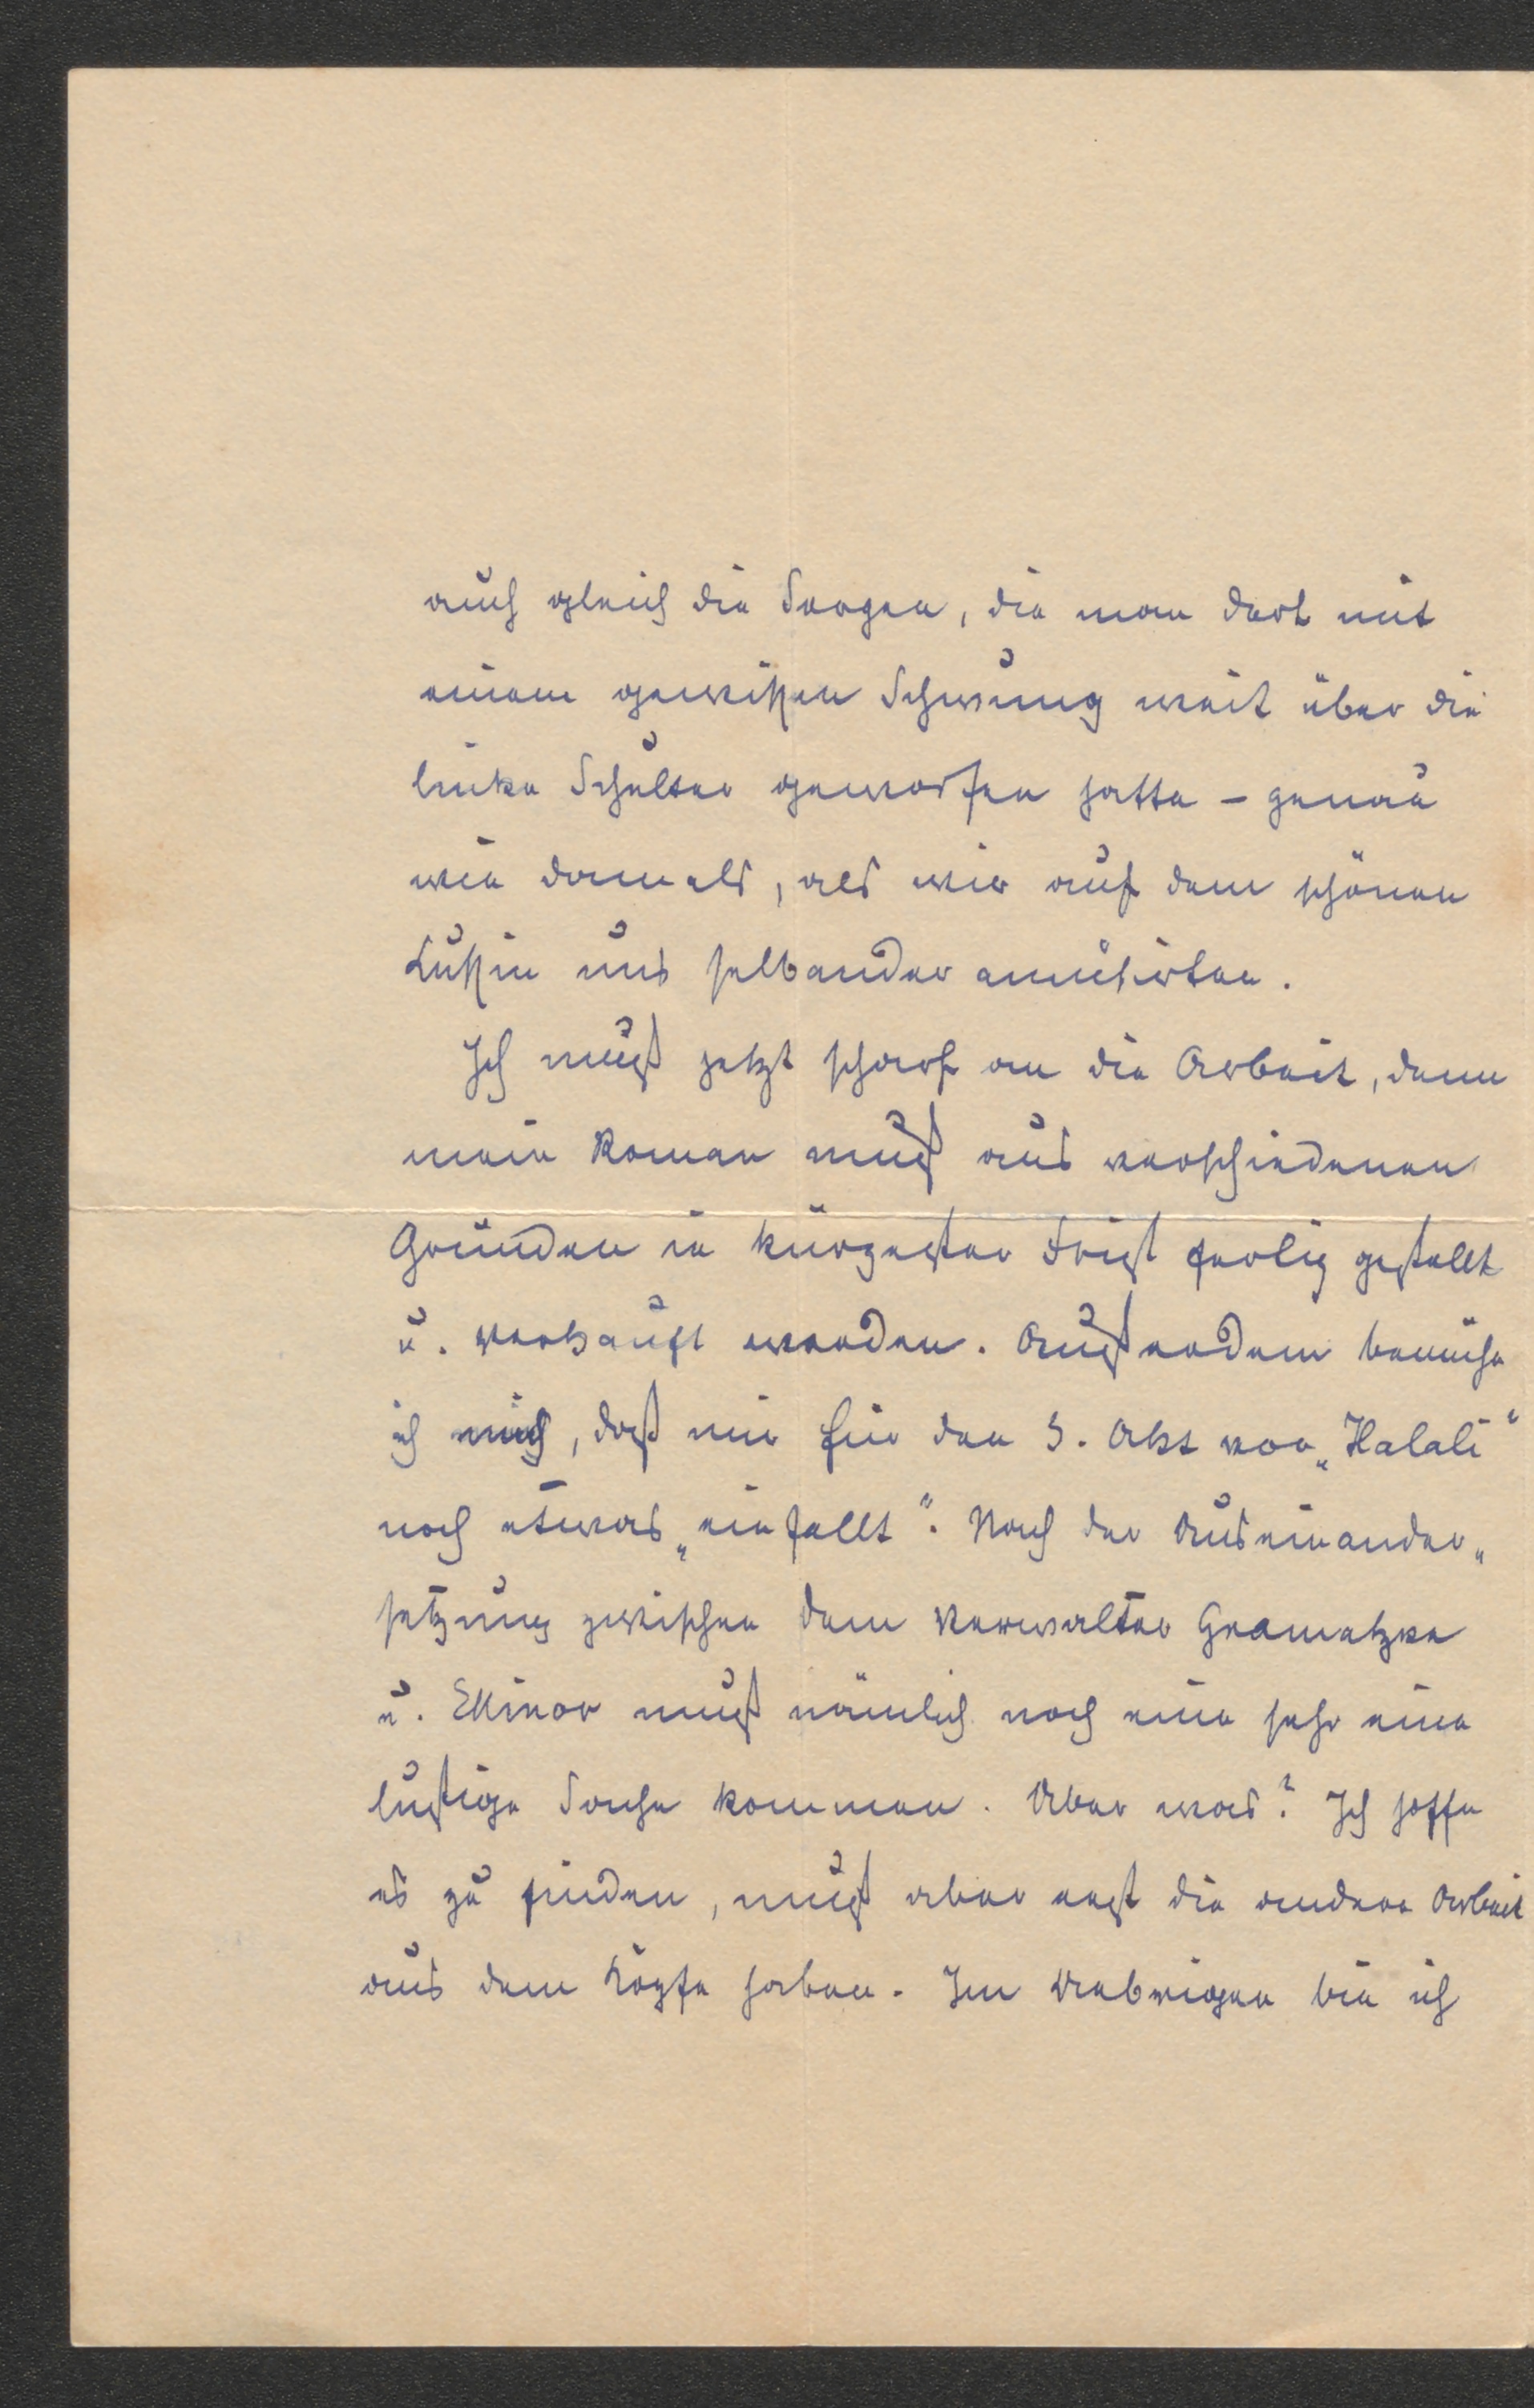 auch gleich die Sorgen, die man dort mit
einem gewissen Schwung weit über die
linke Schulter geworfen hatte – genau
wie damals, als wir auf dem schönen
Lussin uns selbander amüsirten.
Ich muß jetzt scharf an die Arbeit, denn
mein Roman muß aus verschiedenen
Gründen in kürzester Frist fertig gestellt
u. verkauft werden. Außerdem bemühe
ich mich, daß mir für den 3. Akt von „Halali“
noch etwas „einfällt“. Nach der Auseinander„
setzung zwischen dem Verwalter Gramatzke
u. Ellinor muß nämlich noch eine sehr eine
lustige Sache kommen. Aber was? Ich hoffe
es zu finden, muß aber erst die andere Arbeit
aus dem Kopfe haben. Im Uebrigen bin ich